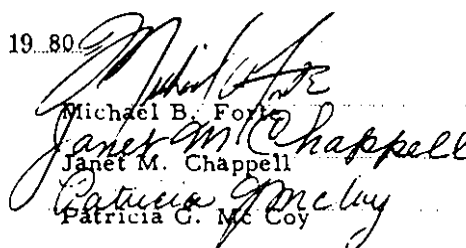 19 80
Michael B. Forte
Michael B. Forte
Janet M Chappell
Janet M. Chappell
Patricia G McCoy
Patricia G. Mc Coy